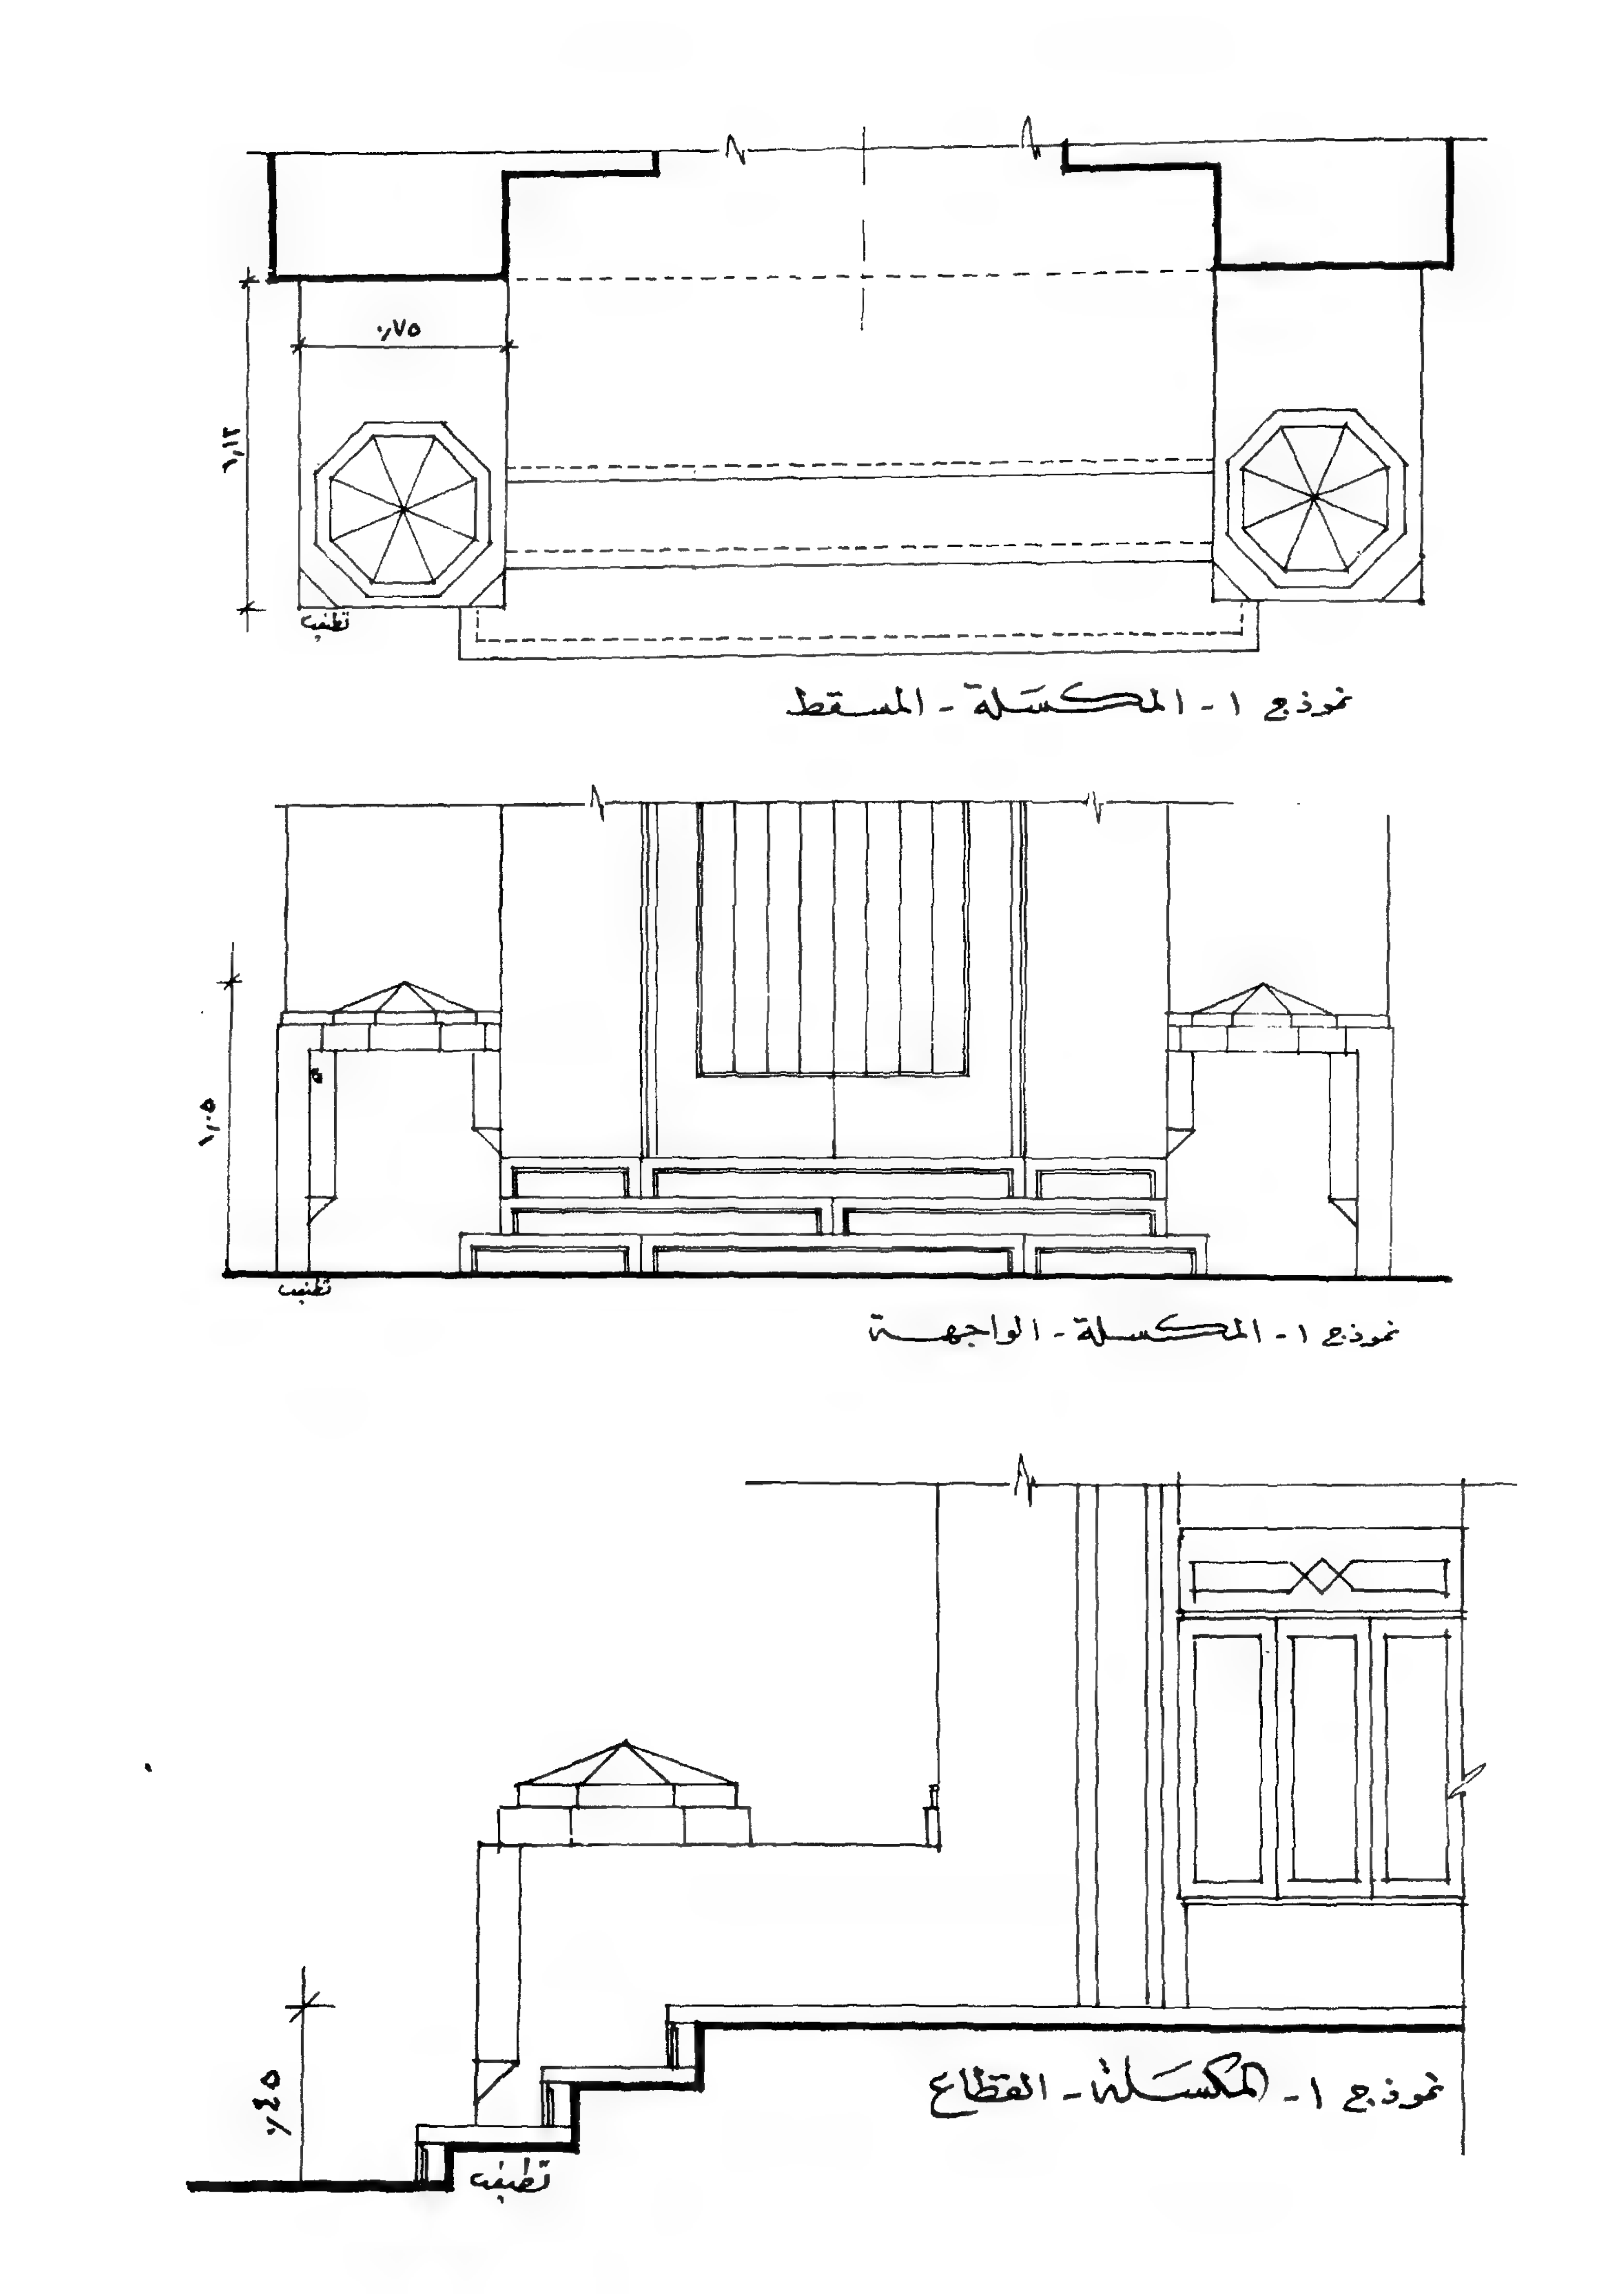 ٠٫٧٥
١٫١٢
نموذج ١ - المكسَلة - المسقط
١٫٠٥
نموذج ١ - المكسلة - الواجهة
٠٫٤٥
نموذج ١ - المكسَلة - القطاع